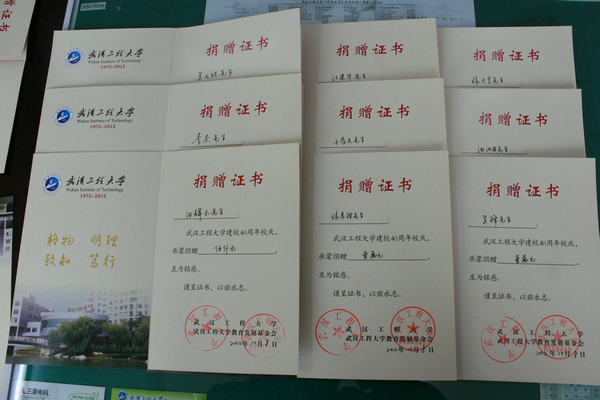 武汉工程大学
Wuhan Institute of Technology
1972-2012
捐赠证书
捐赠证书
捐赠证书
武汉工程大学
Wuhan Institute of Technology
1972-2012
捐赠证书
捐赠证书
捐赠证书
武汉工程大学
Wuhan Institute of Technology
1972-2012
格物 明理
致知 笃行
捐赠证书
先生:
武汉工程大学建校40周年校庆,
承蒙捐赠 伍仟元
至为铭感。
谨呈证书,以兹永志。
武汉工程大学
武汉工程大学教育发展基金会
捐赠证书
先生:
武汉工程大学建校40周年校庆,
承蒙捐赠 壹万元
至为铭感。
谨呈证书,以兹永志。
武汉工程大学
武汉工程大学教育发展基金会
捐赠证书
先生:
武汉工程大学建校40周年校庆,
承蒙捐赠 壹万元
至为铭感。
谨呈证书,以兹永志。
武汉工程大学
武汉工程大学教育发展基金会
三菱电机